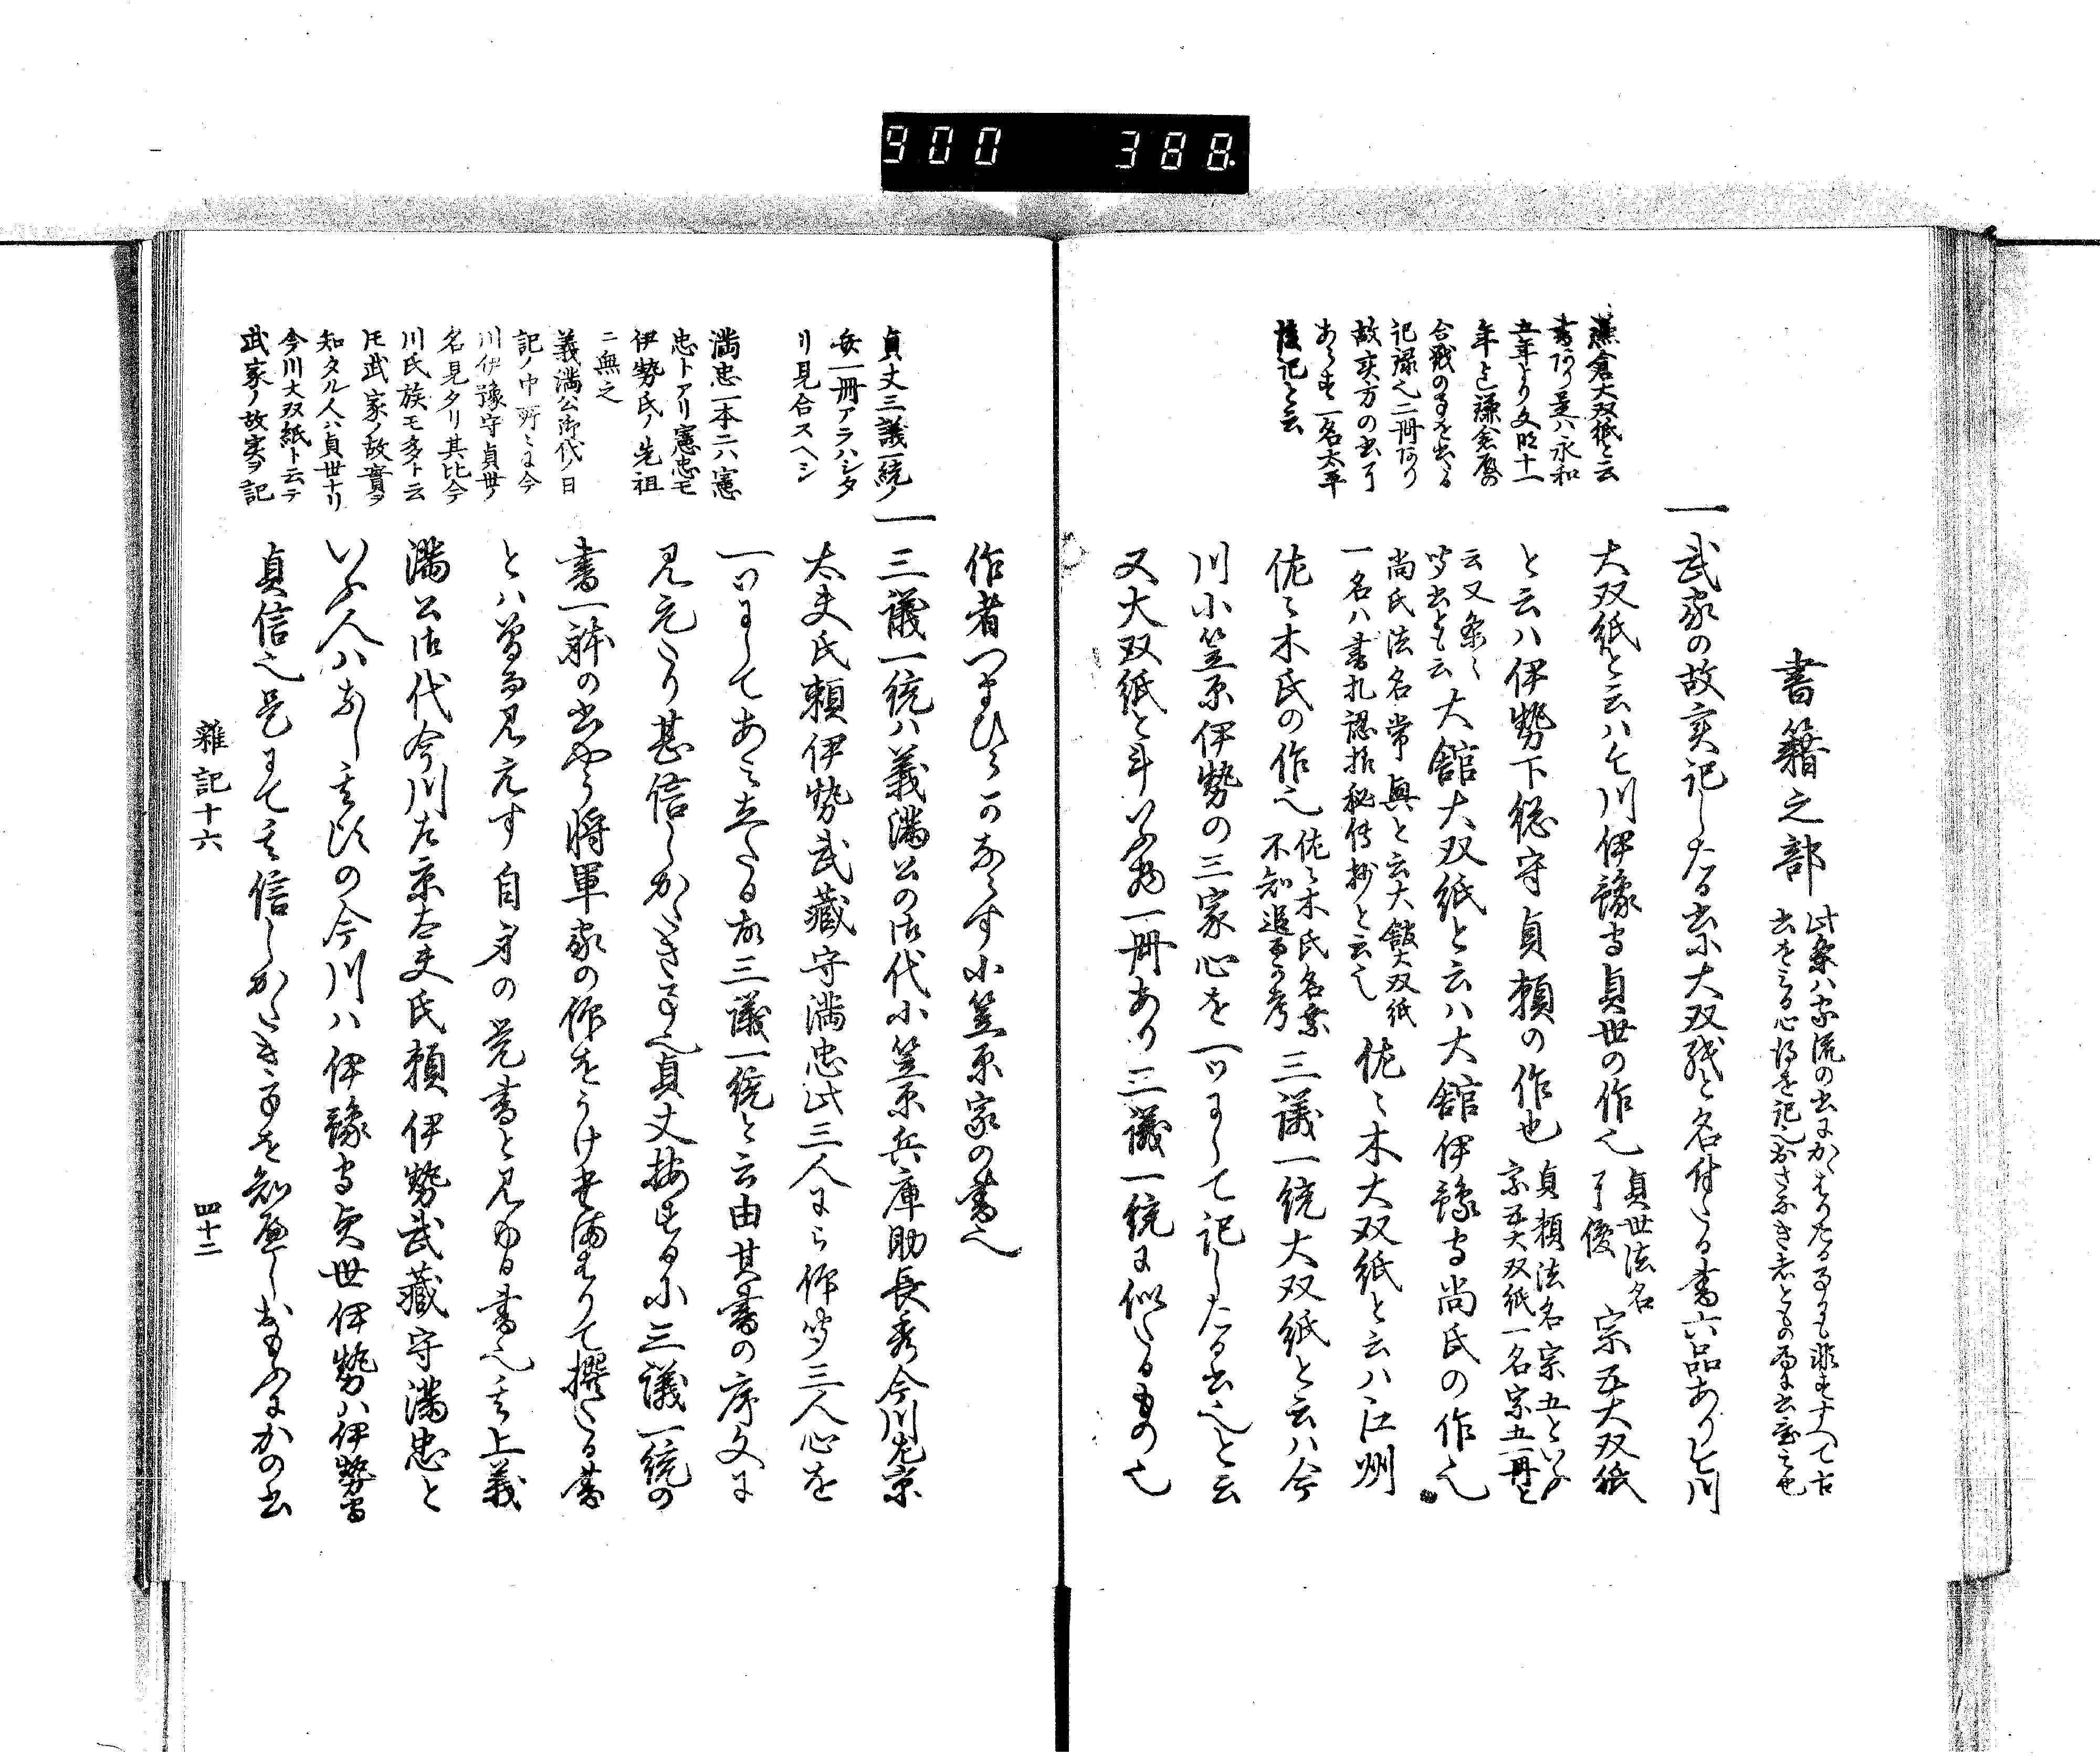 900 388
書籍之部
此条ハ家流の書にかゝはりたる事にも非すすへて古
書をみる心得を記之おさなき者ともの為に書置之也
一
武家の故実記したる書に大双紙と名付たる書六品あり今川
大双紙と云ハ今川伊豫守貞世の作也
貞世法名
了俊
宗五大双紙
と云ハ伊勢下総守貞頼の作也
貞頼法名宗五といふ
宗五大双紙一名宗五一冊と
云又条々
聞書とも云
大舘大双紙と云ハ大舘伊豫守尚氏の作也
尚氏法名常興と云大舘大双紙
一名ハ書札認振秘傳抄と云也
佐々木大双紙と云ハ江州
佐々木氏の作也
佐々木氏名乗
不知追而可考
三議一統大双紙と云ハ今
川小笠原伊勢の三家心を一ツにして記したる書也と云
又大双紙と斗いふ物一冊あり三議一統に似たるもの也
鎌倉大双紙と云
書アリ是ハ永和
五年より文明十一
年迄鎌倉殿の
合戦の事を書る
記録也二冊アリ
故実方の書に
あらす一名太平
後記と云
作者つまひらかならす小笠原家の書也
一
三議一統ハ義満公の御代小笠原兵庫助長秀今川左京
太夫氏頼伊勢武藏守満忠此三人に被仰付三人心を
一ツにしてあみ立たる故三議一統と云由其書の序文に
見えたり甚信しかたき事也貞丈按するに三議一統の
書一躰の書やう将軍家の仰をうけ奉りて撰たる書
とハ曽而見えす自身の覚書と見ゆる書也其上義
満公御代今川左京太夫氏頼伊勢武藏守満忠と
いふ人ハなし其比の今川ハ伊豫守貞世伊勢ハ伊勢守
貞信也是にて其信しかたき事を知へしおもふにかの書
貞丈三議一統ノ
弁一冊アラハシタ
リ見合スヘシ
満忠一本ニハ憲
忠トアリ憲忠モ
伊勢氏ノ先祖
ニ無之
義満公御代ノ日
記ノ中所々に今
川伊豫守貞世ノ
名見タリ其比今
川氏族モ多ト云
𪜈武家ノ故實ヲ
知タル人ハ貞世ナリ
今川大双紙ト云テ
武家ノ故実ヲ記
雜記十六
四十二